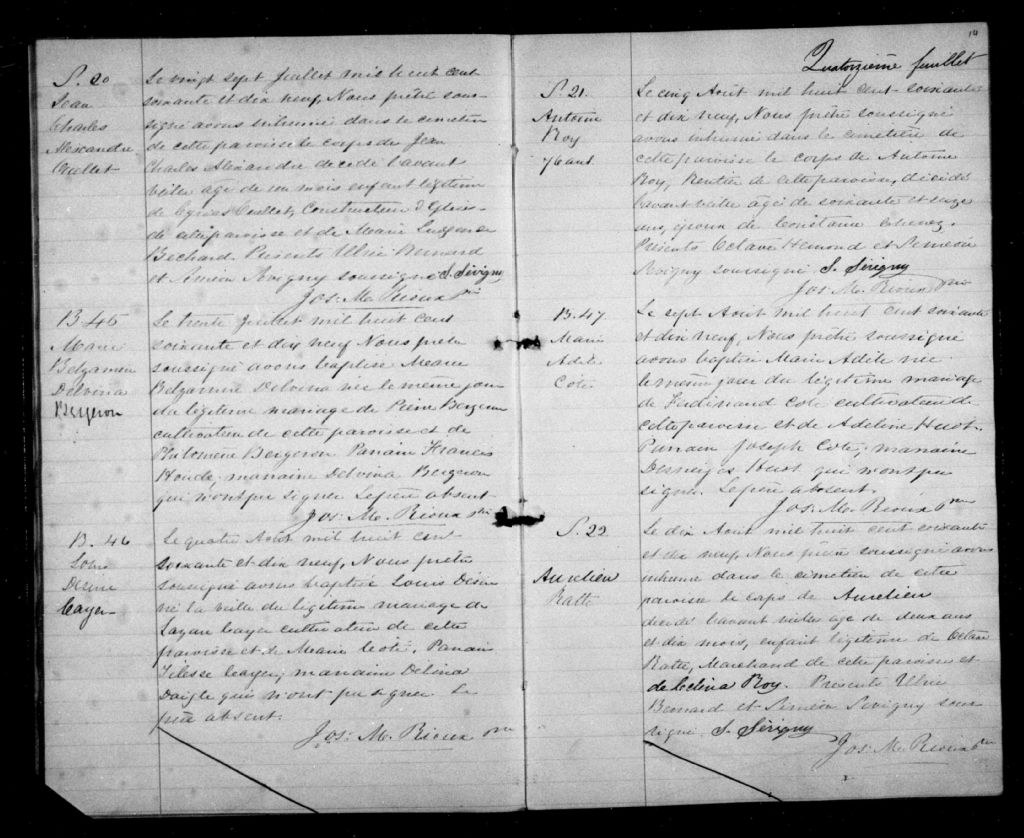 S. 20
Jean
Charles
Alexandre
Ouellet
Le vingt sept Juillet mil huit cent
soixante et dix neuf, Nous prêtre sous-
signé avons inhumé dans le cimetière
de cette paroisse le corps de Jean
Charles Alexandre decédé l'avant
veille agé de un mois enfant légitime
de Ouellet, Constructeur d'Eglises
de cette paroisse et de Marie
Bechard. Présents Ulric Bernard
et Siméon Sévigny soussigné S. Sévigny
Jos: M. Rioux ptre
B. 45
Marie
Belzamire
Delvina
Bergeron
Le trente Juillet mil huit cent
soixante et dix neuf Nous prêtre
soussigné avons baptisé Marie
Belzamire Delvina née le même jour
du légitime mariage de Pierre Bergeron
cultivateur de cette paroisse et de
Philomène Bergeron Parrain Francis
Houle; marraine Delvina Bergeron
qui n'ont pu signer Le père absent
Jos: M. Rioux ptre
B. 46
Louis
Désiré
Cayer
Le quatre Aout mil huit cent
soixante et dix neuf, Nous prêtre
soussigné avons baptisé Louis Désiré
né la veille du légitime mariage de
Cayer cultivateur de cette
paroisse et de Marie Coté, Parrain
Cayer; marraine Délina
Daigle qui n'ont pu signer Le
père absent.
Jos: M. Rioux ptre
14
Quatorzième feuillet
S. 21.
Antoine
Roy
76 ans
Le cinq Aout mil huit cent-soixante
et dix neuf, Nous prêtre soussigné
avons inhumé dans le cimetière de
cette paroisse le corps de Antoine
Roy, Rentier de cette paroisse, décédé
l'avant veille agé de soixante et seize
ans, époux de Constance
Présents Octave Hemond et Siméon
Sevigny soussigné S. Sévigny
Jos: M. Rioux ptre
B. 47
Marie
Adèle
Coté
Le sept Aout mil huit cent soixante
et dix neuf, Nous prêtre soussigné
avons baptisé Marie Adèle née
le même jour du légitime mariage
de Ferdinand Coté cultivateur de
cette paroisse et de Adeline Huot.
Parrain Joseph Coté; marraine
Desneiges Huot qui n'ont pu
signer. Le père absent.
Jos: M. Rioux ptre
S. 22
Aurelien
Ratté
Le dix Aout mil huit cent soixante
et dix neuf, Nous prêtre soussigné avons
inhumé dans le cimetière de cette
paroisse le corps de Aurelien
décédé l'avant veille agé de deux ans
et dix mois, enfant légitime de Octave
Ratté, Marchand de cette paroisse et
de Roy. Présents Ulric
Bernard et Siméon Sevigny sous
signé S. Sévigny
Jos: M. Rioux ptre